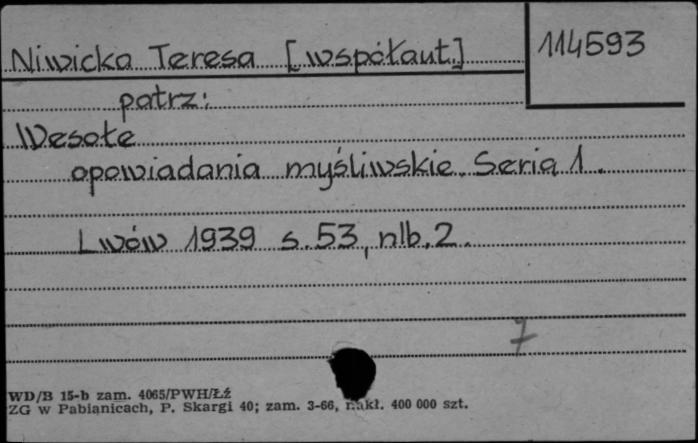 Niwicka Teresa [współaut.]
114593
patrz:
Wesołe
opowiadania myśliwskie. Seria 1.
Lwów 1939 s. 53, nlb. 2.
7
WD/B 15-b zam. 4065/PWH/Łź
ZG w Pabianicach, P. Skargi 40; zam. 3-66, nakł. 400 000 szt.